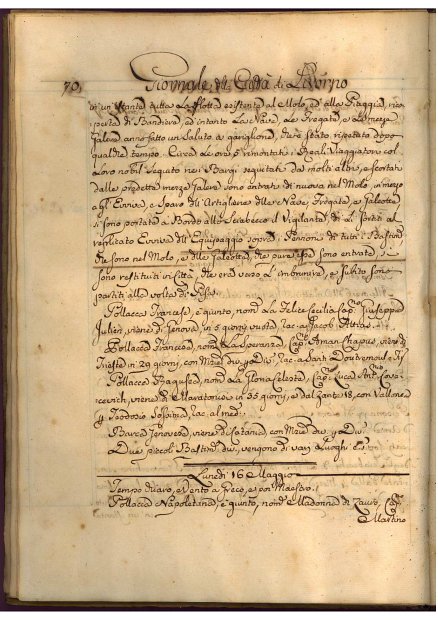 70. Giornale, della Città di Livorno
in un istante tutta La flotta esistente al Molo, ed alla Piaggia, rico
perta di Bandiere, ed intanto La Nave, Le Fregate, e La mezza
Galera anno fatto un Saluto a
qualche tempo. Circa Le ore 5 rimontati i Reali Viaggiatori col
Loro nobil Seguito nei Bargi seguitati da molti altri, e scortati
dalla predetta mezza Galera sono entrati di nuovo nel Molo, in mezzo
agl' Evviva, e Sparo dell' Artiglierie delle Nave, Fregata, e Galeotta
si sono portati a Bordo allo Sciabecco il Vigilante, di dì
replicato Evviva dell' Equipaggio sopra i Pennoni di tutti i Bastim.
che sono nel Molo, e delle Galeotta, che pure esse sono entrate, si
sono restituiti in Città, che era verso L'imbrunire, e subito sono
partiti alla volta di Pisa.
Pollacca Francese, e quinto, nom. La Felice Cecilia Cap. Giuseppe
Julien, viene di Genova in 5 giorni vuota, rac. a Jacob Attias.
Pollacca Francese, nom. La Speranza, Cap. Aman Chapus, viene di
Trieste in 29 giorni, con
Pollacca Ragusea, nom. La Ilona Celeste, Cap. Luca Ant.
viene di Maratonisi in 35 giorni, e dal Zante 18, con Vallonea
rac. al med.
Barca Genovese, viene di Catania, con
Due piccoli Bastim. viengono di vari Luoghi
Lunedì 16 Maggio
Tempo chiaro, e Vento a Greco, e poi Maestro.
Pollacca Napoletana, e quinto, nom. Madonna di Lauro, Cap.
Martino